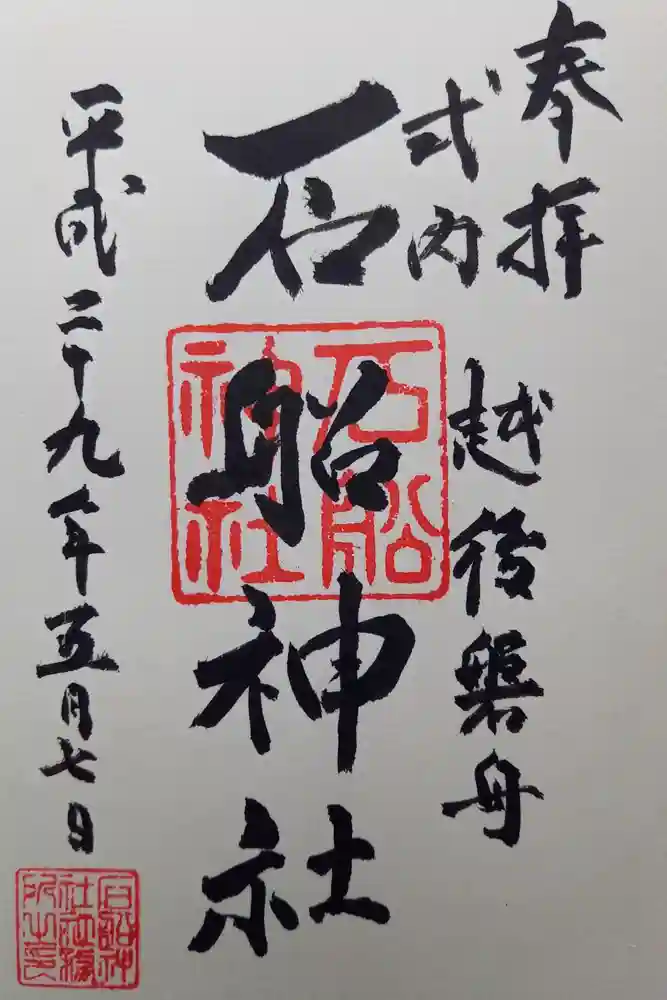 奉拝
越後磐舟
式内
石船神社
石船神社
平成二十九年五月七日
石船神社社務所之印